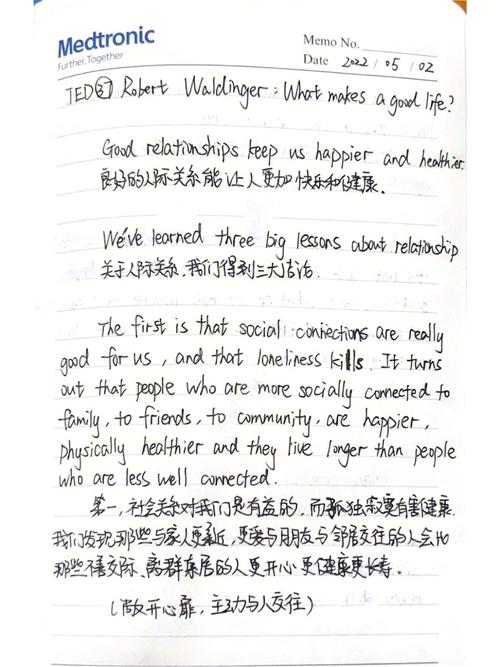 Medtronic
Further, Together
Memo No.
Date 2022 / 05 / 02
TED㊲ Robert Waldinger : What makes a good life?
Good relationships keep us happier and healthier.
良好的人际关系能让人更加快乐和健康.
We've learned three big lessons about relationship
关于人际关系,我们得到三大结论.
The first is that social connections are really
good for us, and that loneliness kills. It turns
out that people who are more socially connected to
family, to friends, to community, are happier,
physically healthier and they live longer than people
who are less well connected.
第一,社会关系对我们是有益的,而孤独寂寞有害健康.
我们发现,那些与家人更亲近,更爱与朋友与邻居交往的人会比
那些不善交际、离群索居的人更开心更健康更长寿.
(敞开心扉,主动与人交往)